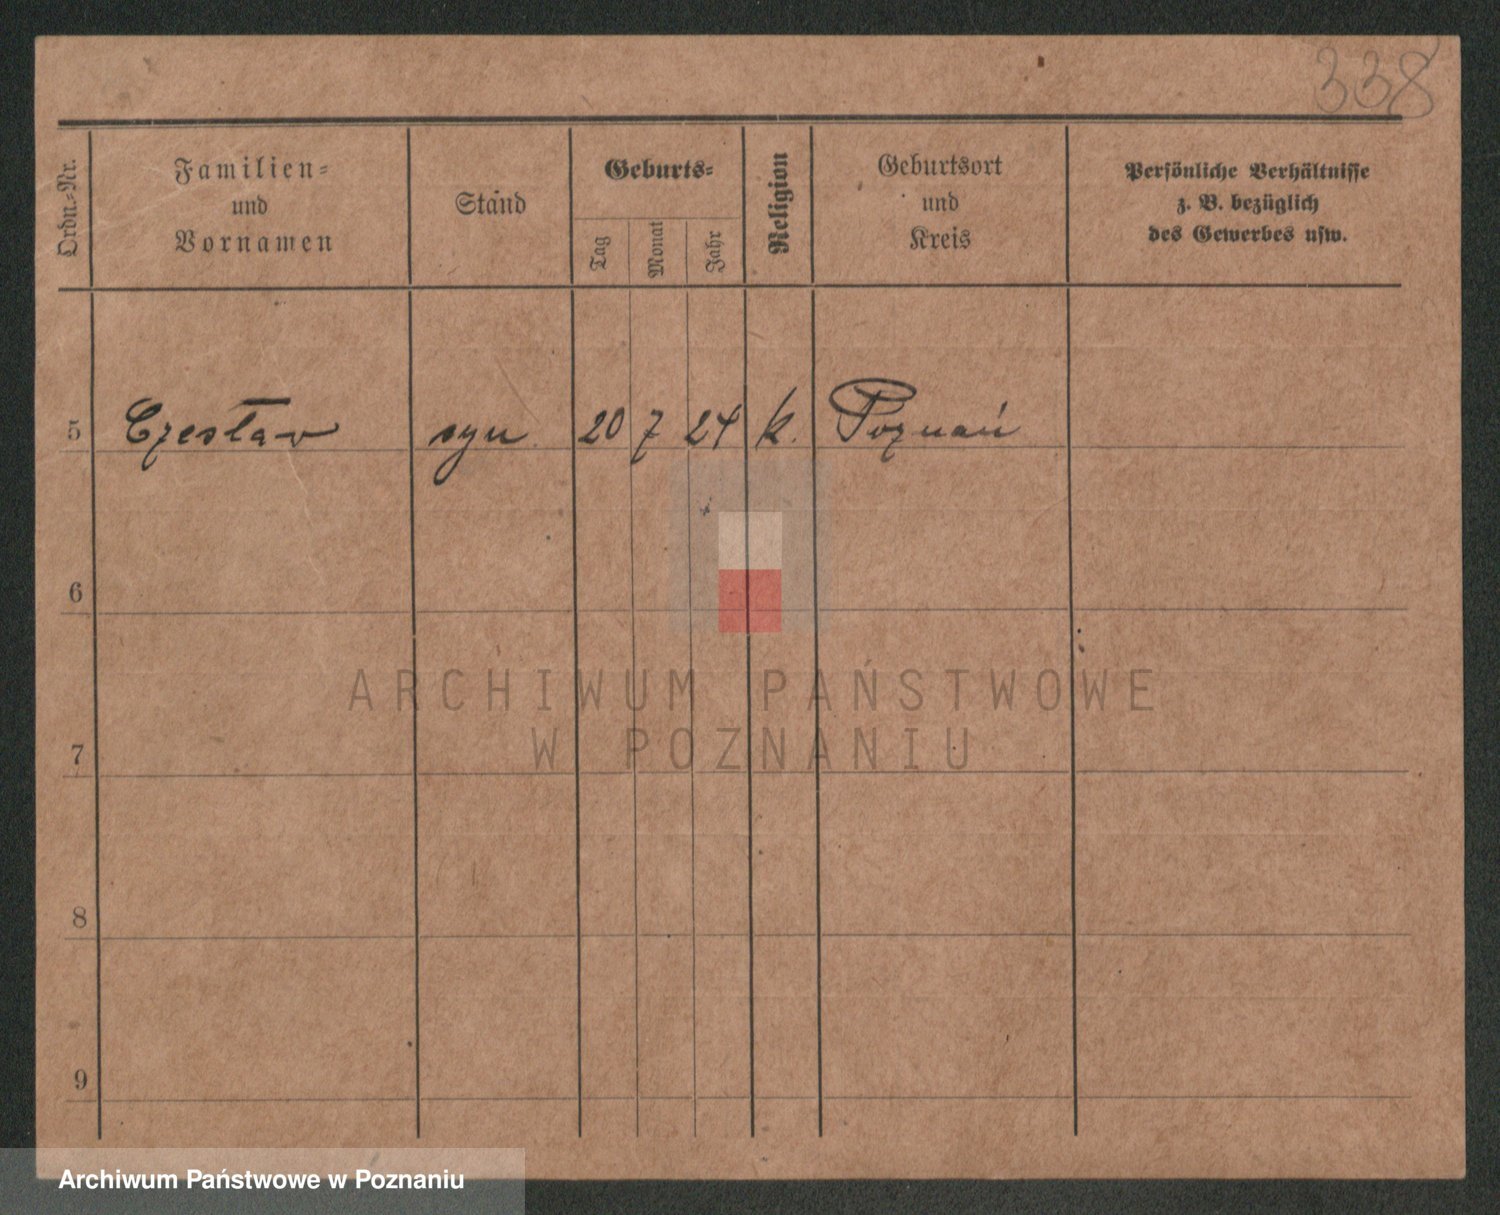 338
Ordn.-Nr.
Familien-
und
Vornamen
Stand
Geburts-
Tag
Monat
Jahr
Religion
Geburtsort
und
Kreis
Persönliche Verhältnisse
z. B. bezüglich
des Gewerbes usw.
5 Czesław syn 20 7 24 k. Poznań
6
7
8
9
ARCHIWUM PAŃSTWOWE
W POZNANIU
Archiwum Państwowe w Poznaniu